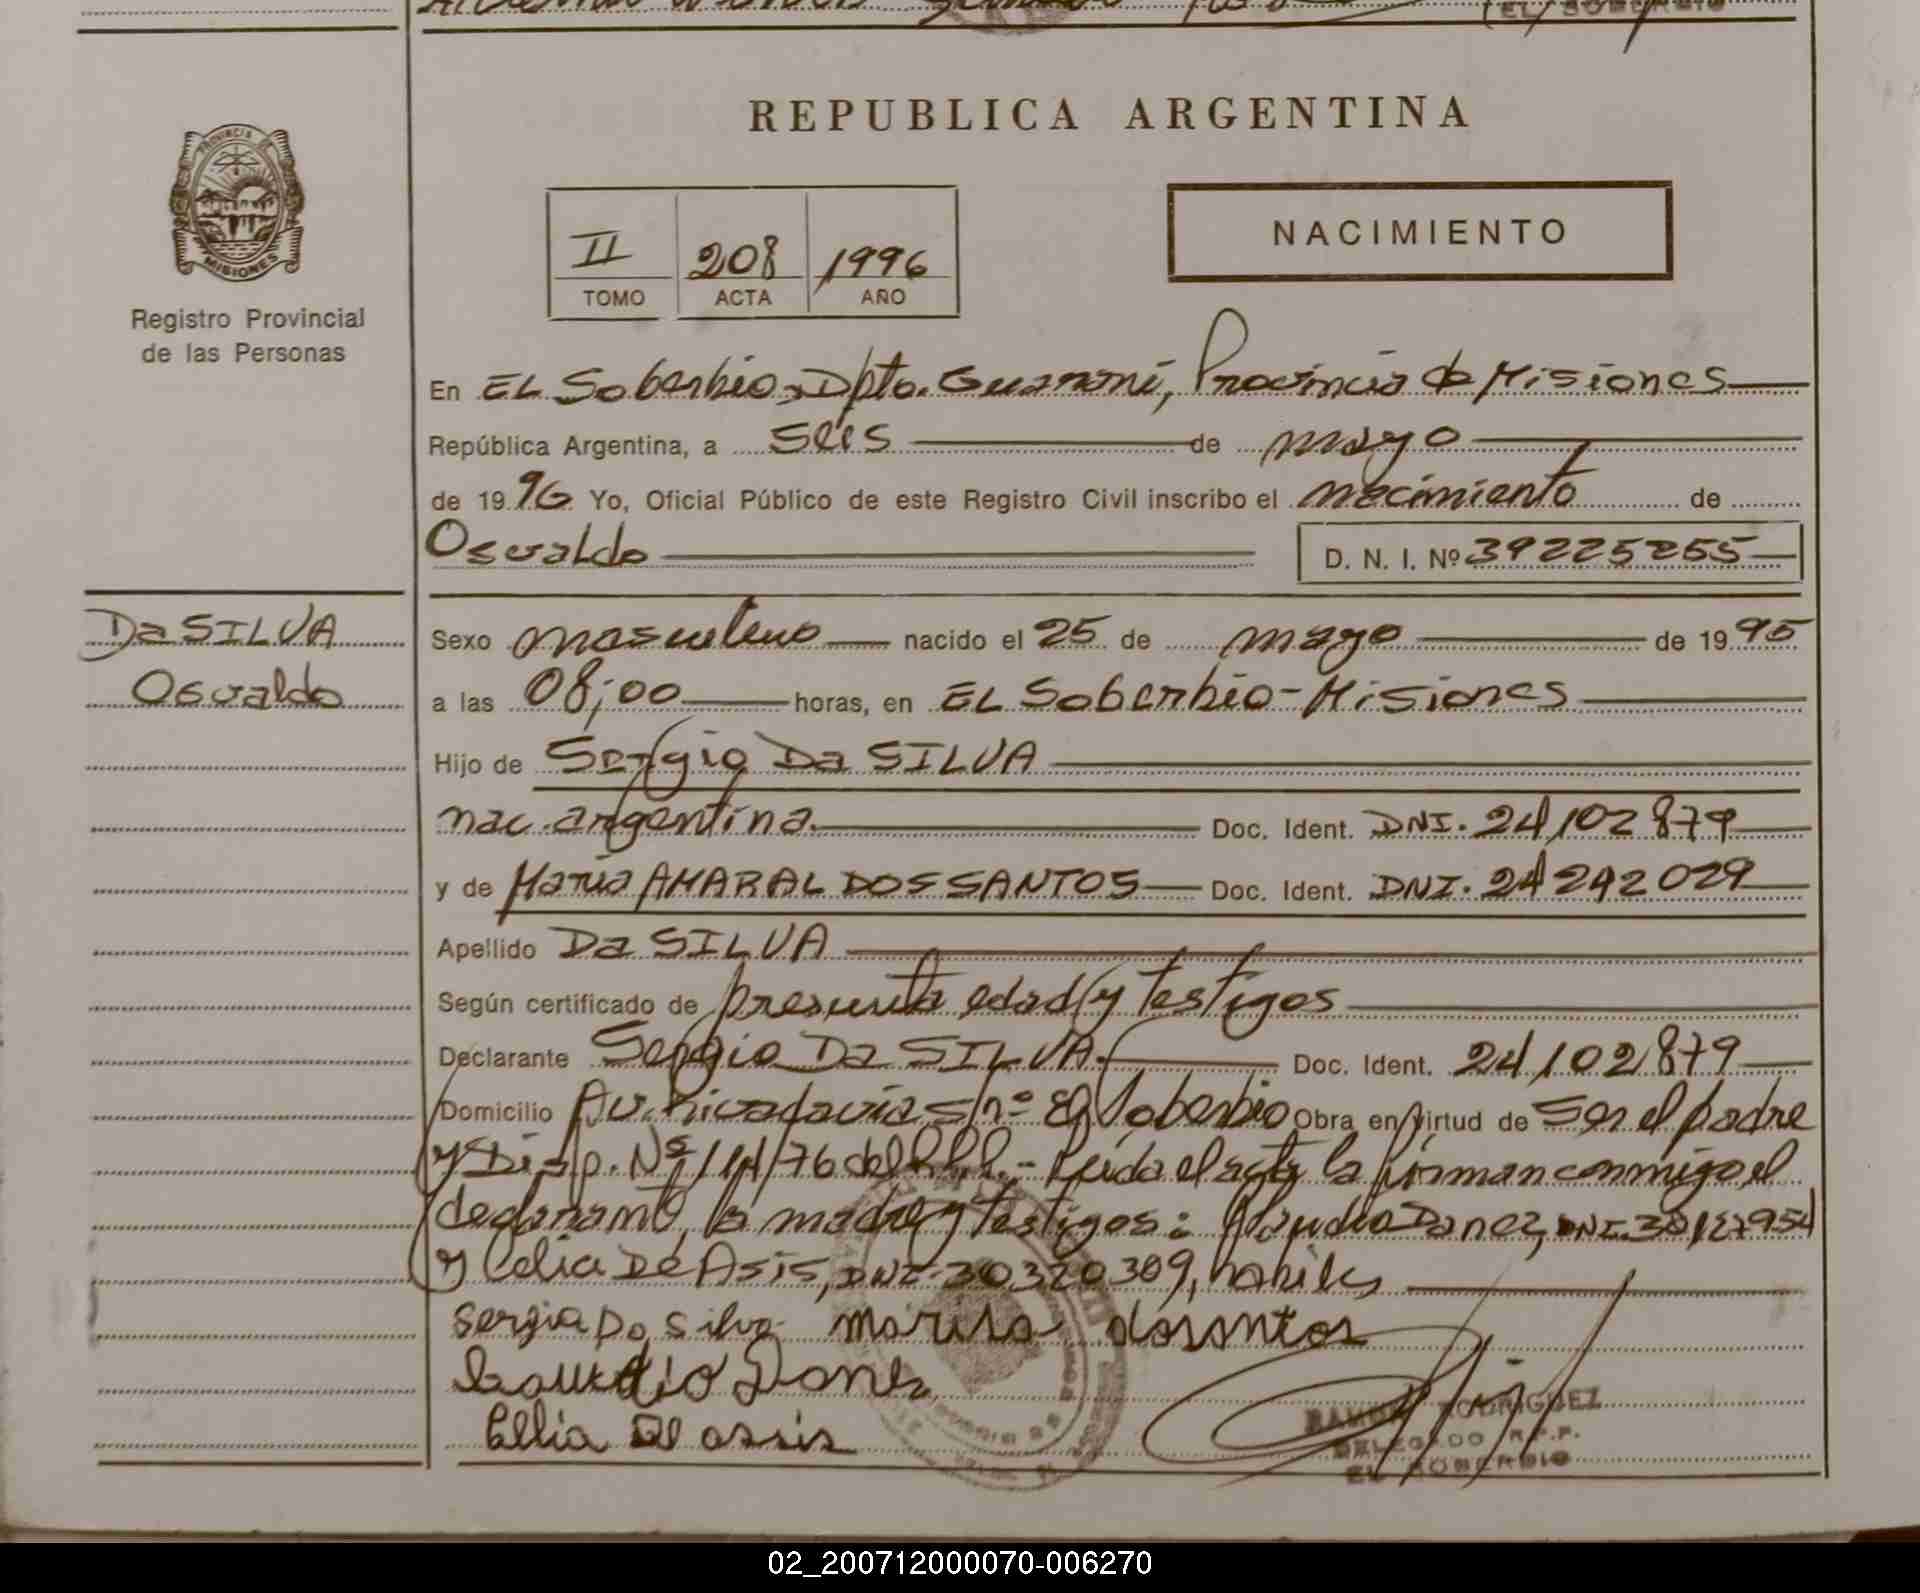 REPUBLICA ARGENTINA
PROVINCIA DE
MISIONES
Registro Provincial
de las Personas
II 208 1996
TOMO ACTA AÑO
NACIMIENTO
En EL Soberbio, Dpto. Guaraní, Provincia de Misiones
República Argentina, a seis de mayo
de 1996 Yo, Oficial Público de este Registro Civil inscribo el nacimiento de
Osvaldo D. N. I. Nº 39225255
Da SILVA
Osvaldo
Sexo masculino nacido el 25 de mayo de 1995
a las 08;00 horas, en EL Soberbio - Misiones
Hijo de Sergio Da SILVA
nac. argentina. Doc. Ident. DNI. 24102879
y de María AMARAL DOS SANTOS Doc. Ident. DNI. 24242029
Apellido Da SILVA
Según certificado de presunta edad y testigos
Declarante Sergio Da SILVA. Doc. Ident. 24102879
Domicilio Av. Rivadavia s/nº El Soberbio Obra en virtud de ser el padre
y Disp. Nº 1/14/76 del R.P.P. - Leída el acta la firman conmigo el
declarante, la madre y testigos: Claudio Danez, DNI. 30127954
y Celia De Asis, DNI-30320309, hábiles
Sergio Da Silva marisa dosantos
Claudio Danes
Celia De assis
RAMON RODRIGUEZ
DELEGADO R.P.P.
EL SOBERBIO
02_200712000070-006270